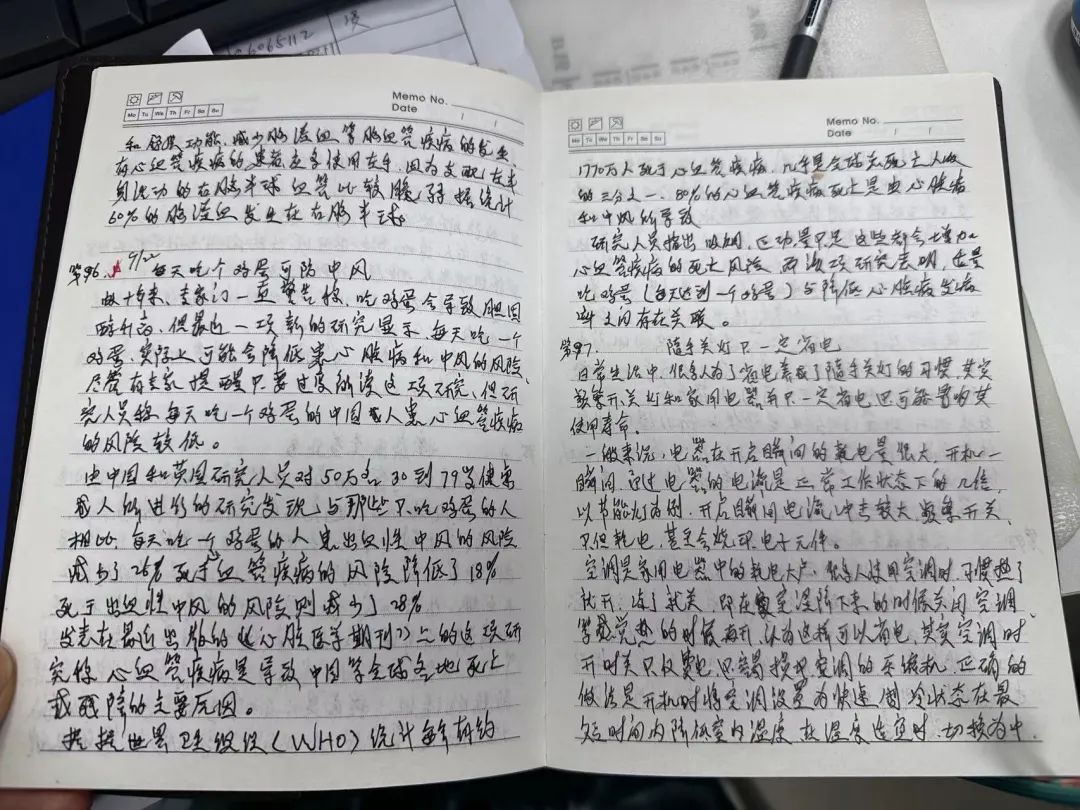 6065112
Memo No.
Date / /
Mo Tu We Th Fr Sa Su
和 功能,减少脑溢血等脑血管疾病的发生
有心血管疾病的患者应多使用左手,因为支配左半
身活动的右脑半球血管比较脆弱 据统计
60%的脑溢血发生在右脑半球
第96. 9/22 每天吃个鸡蛋可防中风
数十年来,专家门一直警告称,吃鸡蛋会导致胆固
醇升高,但最近一项新的研究显示,每天吃一个
鸡蛋,实际上可能会降低患心脏病和中风的风险
尽管有专家提醒不要过度解读这项研究,但研
究人员称每天吃一个鸡蛋的中国人患心血管疾病
的风险较低。
由中国和英国研究人员对50万名30到79岁健康
成人的进行的研究发现,与那些不吃鸡蛋的人
相比,每天吃一个鸡蛋的人患出血性中风的风险
减少了26% 死于血管疾病的风险降低了18%
死于出血性中风的风险则减少了28%
发表在最近出版的《心脏医学期刊》上的这项研
究称 心血管疾病是导致中国等全球各地死亡
或残障的主要原因。
据世界卫生组织(WHO)统计每年有约
Memo No.
Date / /
Mo Tu We Th Fr Sa Su
1770万人死于心血管疾病,几乎是全球死亡人数
的三分之一,80%的心血管疾病死亡是由心脏病
和中风所导致
研究人员指出吸烟,运动量不足这些都会增加
心血管疾病的死亡风险 而该项研究表明,适量
吃鸡蛋(每天达到一个鸡蛋)与降低心脏病发病
率之间存在关联。
第97. 随手关灯不一定省电
日常生活中,很多人为了省电养成了随手关灯的习惯,其实
频繁开、关灯和家用电器并不一定省电还可能影响其
使用寿命.
一般来说,电器在开启瞬间的耗电量很大,开机一
瞬间,通过电器的电流是正常工作状态下的几倍,
以节能灯为例,开启瞬间电流冲击较大 频繁开关、
不但耗电,甚至会烧坏电子元件。
空调是家用电器中的耗电大户,很多人使用空调时习惯热了
就开,凉了就关,即在室温降下来的时候关闭空调
等感觉热的时候再开,认为这样可以省电,其实空调时
开时关不仅费电,还容易损坏空调的压缩机,正确的
做法是开机时将空调设置为快速制冷状态在最
短时间内降低室内温度 在温度适宜时,切换为中.